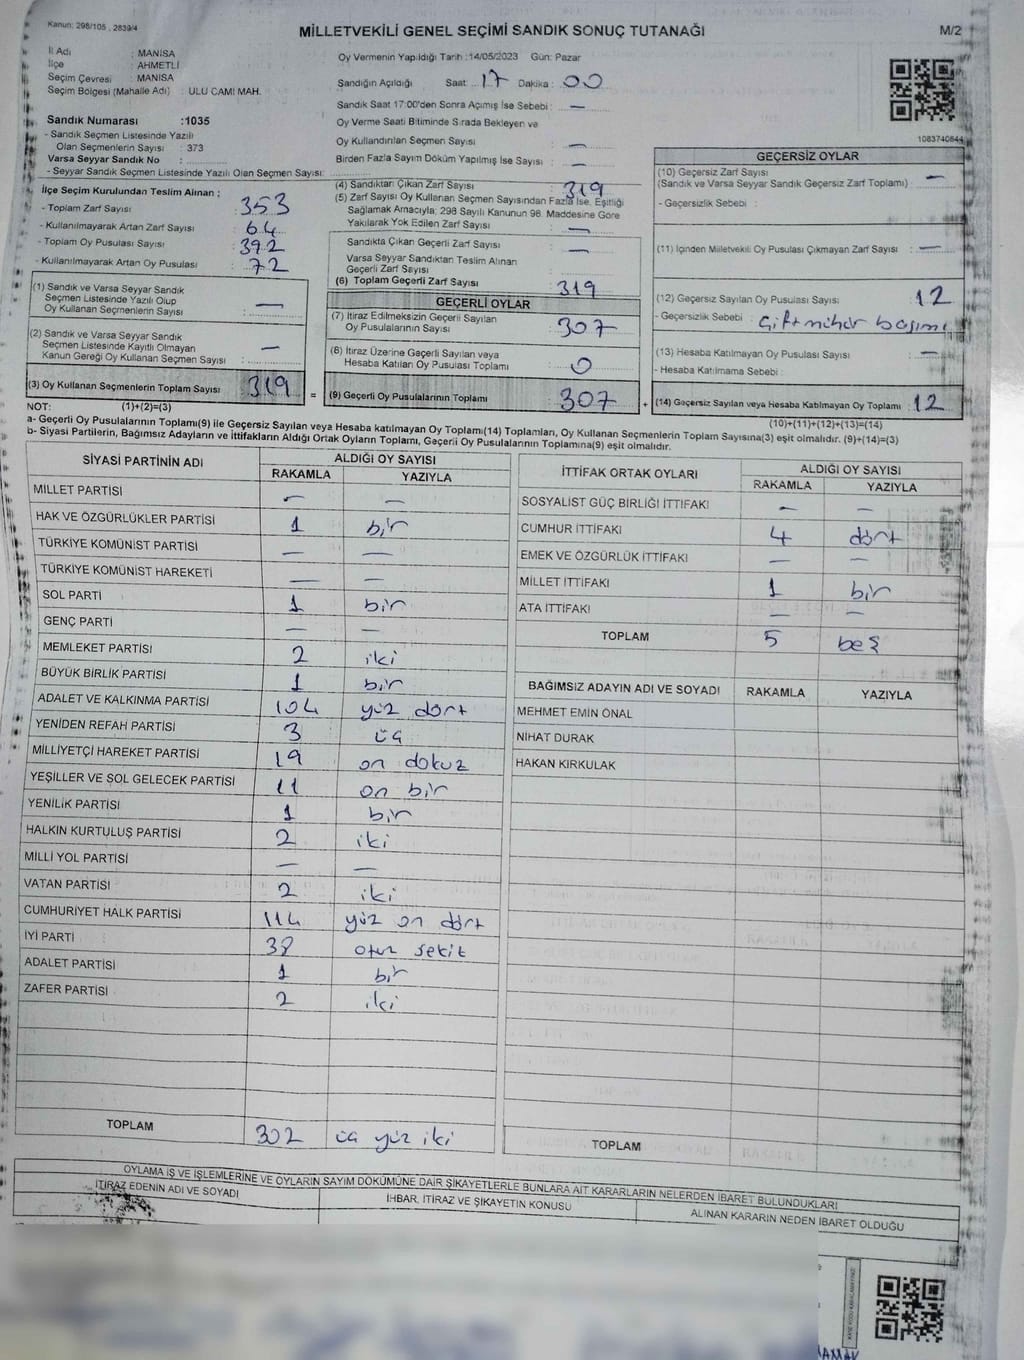 Kanun: 298/105 , 2839/4
MİLLETVEKİLİ GENEL SEÇİMİ SANDIK SONUÇ TUTANAĞI
M/2
İl Adı : MANİSA
İlçe : AHMETLİ
Seçim Çevresi : MANİSA
Seçim Bölgesi (Mahalle Adı) : ULU CAMİ MAH.
Sandık Numarası :1035
- Sandık Seçmen Listesinde Yazılı
Olan Seçmenlerin Sayısı : 373
Varsa Seyyar Sandık No :
- Seyyar Sandık Seçmen Listesinde Yazılı Olan Seçmen Sayısı:
Oy Vermenin Yapıldığı Tarih :14/05/2023 Gün: Pazar
Sandığın Açıldığı Saat: 17 Dakika : 00
Sandık Saat 17:00'den Sonra Açımış İse Sebebi : —
Oy Verme Saati Bitiminde Sırada Bekleyen ve
Oy Kullandırılan Seçmen Sayısı : —
Birden Fazla Sayım Döküm Yapılmış İse Sayısı : —
1083740844
İlçe Seçim Kurulundan Teslim Alınan ;
- Toplam Zarf Sayısı : 353
- Kullanılmayarak Artan Zarf Sayısı : 64
- Toplam Oy Pusulası Sayısı : 392
- Kullanılmayarak Artan Oy Pusulası : 72
(1) Sandık ve Varsa Seyyar Sandık
Seçmen Listesinde Yazılı Olup
Oy Kullanan Seçmenlerin Sayısı : —
(2) Sandık ve Varsa Seyyar Sandık
Seçmen Listesinde Kayıtlı Olmayan
Kanun Gereği Oy Kullanan Seçmen Sayısı : —
(3) Oy Kullanan Seçmenlerin Toplam Sayısı 319 =
(4) Sandıktan Çıkan Zarf Sayısı : 319
(5) Zarf Sayısı Oy Kullanan Seçmen Sayısından Fazla İse, Eşitliği
Sağlamak Amacıyla, 298 Sayılı Kanunun 98. Maddesine Göre
Yakılarak Yok Edilen Zarf Sayısı : —
Sandıkta Çıkan Geçerli Zarf Sayısı : —
Varsa Seyyar Sandıktan Teslim Alınan
Geçerli Zarf Sayısı :
(6) Toplam Geçerli Zarf Sayısı : 319
GEÇERLİ OYLAR
(7) İtiraz Edilmeksizin Geçerli Sayılan
Oy Pusulalarının Sayısı : 307
(8) İtiraz Üzerine Geçerli Sayılan veya
Hesaba Katılan Oy Pusulası Toplamı : 0
(9) Geçerli Oy Pusulalarının Toplamı : 307 +
GEÇERSİZ OYLAR
(10) Geçersiz Zarf Sayısı
(Sandık ve Varsa Seyyar Sandık Geçersiz Zarf Toplamı) : —
- Geçersizlik Sebebi :
(11) İçinden Milletvekili Oy Pusulası Çıkmayan Zarf Sayısı : —
(12) Geçersiz Sayılan Oy Pusulası Sayısı : 12
- Geçersizlik Sebebi : Çift mühür basımı
(13) Hesaba Katılmayan Oy Pusulası Sayısı : —
- Hesaba Katılmama Sebebi :
(14) Geçersiz Sayılan veya Hesaba Katılmayan Oy Toplamı : 12
NOT: (1)+(2)=(3)
(10)+(11)+(12)+(13)=(14)
a- Geçerli Oy Pusulalarının Toplamı(9) ile Geçersiz Sayılan veya Hesaba katılmayan Oy Toplamı(14) Toplamları, Oy Kullanan Seçmenlerin Toplam Sayısına(3) eşit olmalıdır. (9)+(14)=(3)
b- Siyasi Partilerin, Bağımsız Adayların ve İttifakların Aldığı Ortak Oyların Toplamı, Geçerli Oy Pusulalarının Toplamına(9) eşit olmalıdır.
SİYASİ PARTİNİN ADI
ALDIĞI OY SAYISI
RAKAMLA YAZIYLA
MİLLET PARTİSİ — —
HAK VE ÖZGÜRLÜKLER PARTİSİ 1 bir
TÜRKİYE KOMÜNİST PARTİSİ — —
TÜRKİYE KOMÜNİST HAREKETİ — —
SOL PARTİ 1 bir
GENÇ PARTİ — —
MEMLEKET PARTİSİ 2 iki
BÜYÜK BİRLİK PARTİSİ 1 bir
ADALET VE KALKINMA PARTİSİ 104 yüz dört
YENİDEN REFAH PARTİSİ 3 üç
MİLLİYETÇİ HAREKET PARTİSİ 19 on dokuz
YEŞİLLER VE SOL GELECEK PARTİSİ 11 on bir
YENİLİK PARTİSİ 1 bir
HALKIN KURTULUŞ PARTİSİ 2 iki
MİLLİ YOL PARTİSİ — —
VATAN PARTİSİ 2 iki
CUMHURİYET HALK PARTİSİ 114 yüz on dört
İYİ PARTİ 38 otuz sekiz
ADALET PARTİSİ 1 bir
ZAFER PARTİSİ 2 iki
TOPLAM 302 üç yüz iki
İTTİFAK ORTAK OYLARI
ALDIĞI OY SAYISI
RAKAMLA YAZIYLA
SOSYALİST GÜÇ BİRLİĞİ İTTİFAKI — —
CUMHUR İTTİFAKI 4 dört
EMEK VE ÖZGÜRLÜK İTTİFAKI — —
MİLLET İTTİFAKI 1 bir
ATA İTTİFAKI — —
TOPLAM 5 beş
BAĞIMSIZ ADAYIN ADI VE SOYADI RAKAMLA YAZIYLA
MEHMET EMİN ÖNAL
NİHAT DURAK
HAKAN KIRKULAK
TOPLAM
OYLAMA İŞ VE İŞLEMLERİNE VE OYLARIN SAYIM DÖKÜMÜNE DAİR ŞİKAYETLERLE BUNLARA AİT KARARLARIN NELERDEN İBARET BULUNDUKLARI
İTİRAZ EDENİN ADI VE SOYADI
İHBAR, İTİRAZ VE ŞİKAYETİN KONUSU
ALINAN KARARIN NEDEN İBARET OLDUĞU